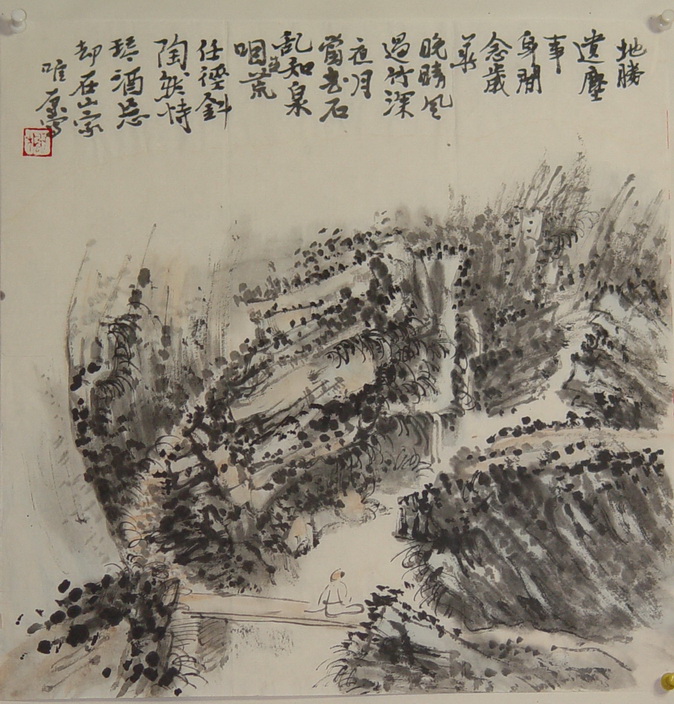 地勝
遺塵
事
身閒
念歲
華
晚晴風
過竹深
夜月
當花石
亂知泉
咽苔荒
任徑斜
陶然恃
琴酒忘
却在山家
唯原寫